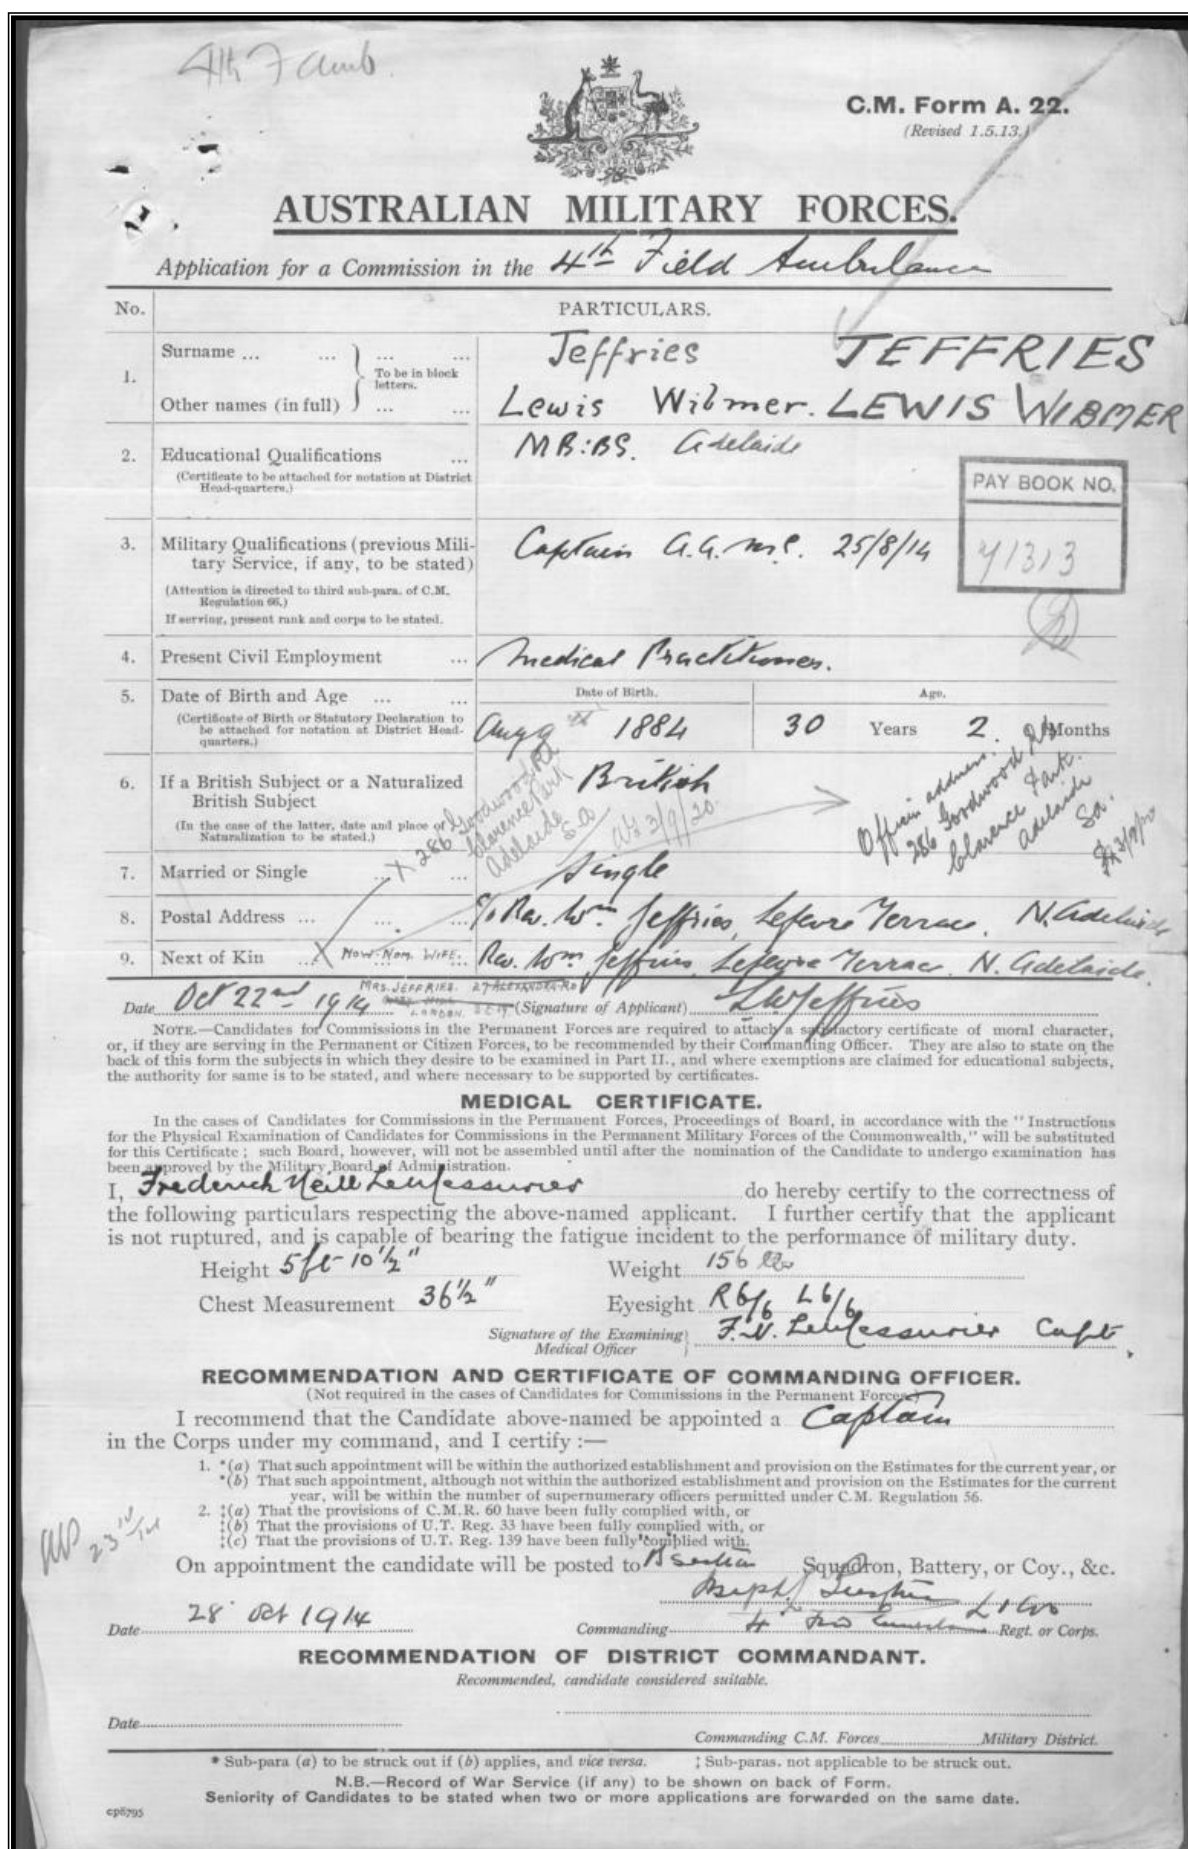 4th F Amb.
C.M. Form A. 22.
(Revised 1.5.13.)
AUSTRALIAN MILITARY FORCES.
Application for a Commission in the 4th Field Ambulance
No. PARTICULARS.
1. Surname ... ... ... ... Jeffries JEFFRIES
To be in block letters.
Other names (in full) ... ... Lewis Wibmer. LEWIS WIBMER
2. Educational Qualifications ... MB:BS. Adelaide
(Certificate to be attached for notation at District
Head-quarters.)
PAY BOOK NO.
3. Military Qualifications (previous Mili-
tary Service, if any, to be stated) Captain A.A.M.C. 25/8/14
(Attention is directed to third sub-para. of C.M.
Regulation 66.)
If serving, present rank and corps to be stated.
4. Present Civil Employment ... Medical Practitioner.
5. Date of Birth and Age ... ... Date of Birth. Age.
(Certificate of Birth or Statutory Declaration to
be attached for notation at District Head-
quarters.)
Aug 9 1884 30 Years 2 Months
6. If a British Subject or a Naturalized
British Subject British
(In the case of the latter, date and place of
Naturalization to be stated.)
X 286 Goodwood Rd
Clarence Park
Adelaide
S.A
3/9/20
Officers address.
286 Goodwood Rd
Clarence Park.
Adelaide
Sa.
3/9/20
7. Married or Single ... ... Single
8. Postal Address ... ... ... C/o Rev. Wm Jeffries, Lefevre Terrace, N. Adelaide
9. Next of Kin ... X NOW-NOM. WIFE. Rev. Wm Jeffries, Lefevre Terrace, N. Adelaide.
MRS. JEFFRIES. 27 ALEXANDRA RD
LONDON.
Date Oct 22nd 1914 (Signature of Applicant) L.W. Jeffries
NOTE.—Candidates for Commissions in the Permanent Forces are required to attach a satisfactory certificate of moral character,
or, if they are serving in the Permanent or Citizen Forces, to be recommended by their Commanding Officer. They are also to state on the
back of this form the subjects in which they desire to be examined in Part II., and where exemptions are claimed for educational subjects,
the authority for same is to be stated, and where necessary to be supported by certificates.
MEDICAL CERTIFICATE.
In the cases of Candidates for Commissions in the Permanent Forces, Proceedings of Board, in accordance with the "Instructions
for the Physical Examination of Candidates for Commissions in the Permanent Military Forces of the Commonwealth," will be substituted
for this Certificate; such Board, however, will not be assembled until after the nomination of the Candidate to undergo examination has
been approved by the Military Board of Administration.
I, Frederick Neill LeMessurier do hereby certify to the correctness of
the following particulars respecting the above-named applicant. I further certify that the applicant
is not ruptured, and is capable of bearing the fatigue incident to the performance of military duty.
Height 5ft-10½" Weight 156 lbs
Chest Measurement 36½" Eyesight R 6/6 L 6/6
Signature of the Examining
Medical Officer F.N. LeMessurier Capt
RECOMMENDATION AND CERTIFICATE OF COMMANDING OFFICER.
(Not required in the cases of Candidates for Commissions in the Permanent Forces.)
I recommend that the Candidate above-named be appointed a Captain
in the Corps under my command, and I certify :—
1. *(a) That such appointment will be within the authorized establishment and provision on the Estimates for the current year, or
*(b) That such appointment, although not within the authorized establishment and provision on the Estimates for the current
year, will be within the number of supernumerary officers permitted under C.M. Regulation 56.
2. ‡(a) That the provisions of C.M.R. 60 have been fully complied with, or
‡(b) That the provisions of U.T. Reg. 33 have been fully complied with, or
‡(c) That the provisions of U.T. Reg. 139 have been fully complied with.
On appointment the candidate will be posted to B section Squadron, Battery, or Coy., &c.
Date 28 Oct 1914 Commanding 4 Regt. or Corps.
RECOMMENDATION OF DISTRICT COMMANDANT.
Recommended, candidate considered suitable.
Date
Commanding C.M. Forces Military District.
* Sub-para (a) to be struck out if (b) applies, and vice versa. ‡ Sub-paras. not applicable to be struck out.
N.B.—Record of War Service (if any) to be shown on back of Form.
Seniority of Candidates to be stated when two or more applications are forwarded on the same date.
cp6795